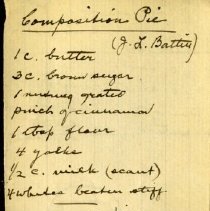 Composition Pie
(J. L. Battis)
1 c. butter
3 c. brown sugar
1 nutmeg grated
pinch of cinnamon
1 tbsp flour
4 yolks
1/2 c. milk (scant)
4 whites beaten stiff